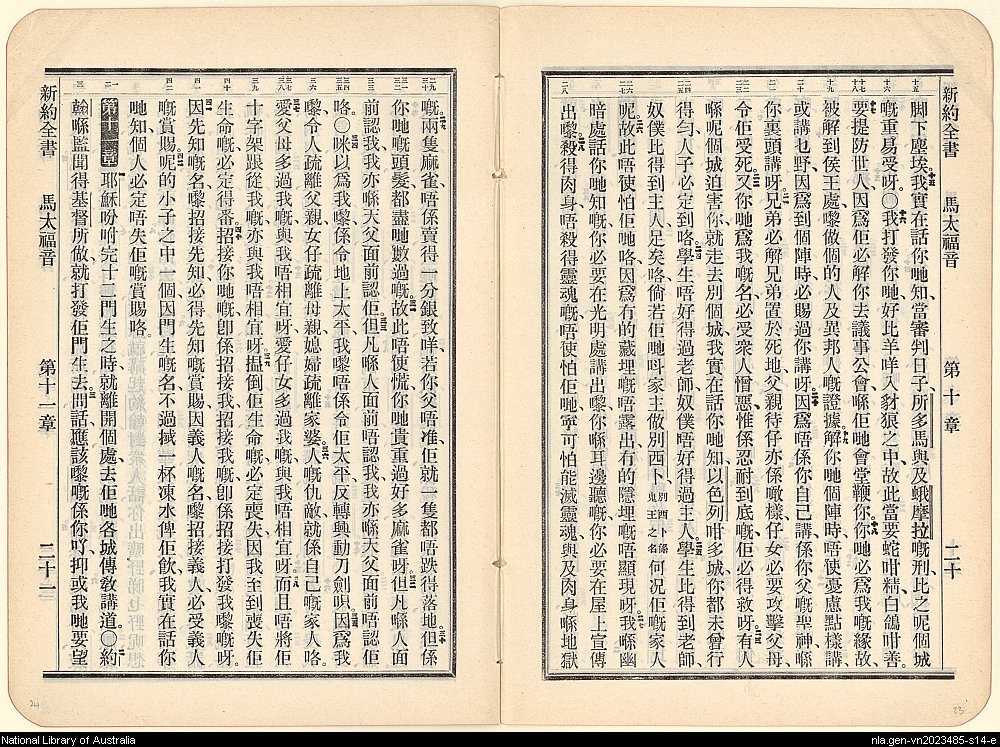 新約全書 馬太福音 第十章 二十
脚下塵埃我實在話你哋知當審判日子所多馬與及蛾摩拉嘅刑比之呢個城
嘅重易受呀〇我打發你哋好比羊咩入豺狼之中故此當要蛇咁精白鴿咁善
要提防世人因爲佢必解你去議事公會喺佢哋會堂鞭你你哋必爲我嘅緣故
被解到侯王處嚟做個的人及異邦人嘅證據解你哋個陣時唔使憂慮點樣講
或講乜野因爲到個陣時必賜過你講呀因爲唔係你自己講係你父嘅聖神喺
你裏頭講呀兄弟必解兄弟置於死地父親待仔亦係噉樣仔女必要攻擊父母
令佢受死又你哋爲我嘅名必受衆人憎惡惟係忍耐到底嘅佢必得救呀有人
喺呢個城迫害你就走去別個城我實在話你哋知以色列咁多城你都未曾行
得匀人子必定到咯學生唔好得過老師奴僕唔好得過主人學生比得到老師
奴僕比得到主人足矣咯倘若佢哋呌家主做別西卜別西卜係鬼王之名何况佢嘅家人
呢故此唔使怕佢哋咯因爲有的藏埋嘅唔露出有的隱埋嘅唔顯現呀我喺幽
暗處話你哋知嘅你必要在光明處講出嚟你喺耳邊聽嘅你必要在屋上宣傳
出嚟殺得肉身唔殺得靈魂嘅唔使怕佢哋寧可怕能滅靈魂與及肉身喺地獄
嘅兩隻麻雀唔係賣得一分銀致咩若你父唔准佢就一隻都唔跌得落地但係
你哋嘅頭髮都盡哋數過嘅故此唔使慌你哋貴重過好多麻雀呀但凡喺人面
前認我我亦喺天父面前認佢但凡喺人面前唔認我我亦喺天父面前唔認佢
咯〇咪以爲我嚟係令地上太平我嚟唔係令佢太平反轉興動刀劍唄因爲我
嚟令人疏離父親女仔疏離母親媳婦疏離家婆人嘅仇敵就係自己嘅家人咯
愛父母多過我嘅與我唔相宜呀愛仔女多過我嘅與我唔相宜呀而且唔將佢
十字架跟從我嘅亦與我唔相宜呀搵倒佢生命嘅必定喪失因我至到喪失佢
生命嘅必定得番招接你哋嘅卽係招接我招接我嘅卽係招接打發我嚟嘅呀
因先知嘅名嚟招接先知必得先知嘅賞賜因義人嘅名嚟招接義人必受義人
嘅賞賜呢的小子之中一個因門生嘅名不過掝一杯凍水俾佢飮我實在話你
哋知個人必定唔失佢嘅賞賜咯
第十一章 耶穌吩咐完十二門生之時就離開個處去佢哋各城傳敎講道〇約
翰喺監聞得基督所做就打發佢門生去問話應該嚟嘅係你吖抑或我哋要望
新約全書 馬太福音 第十一章 二十一
24
23
National Library of Australia
nla.gen-vn2023485-s14-e